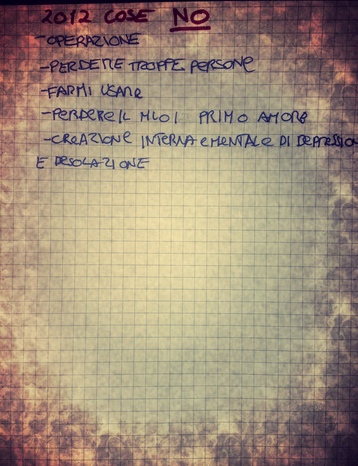 2012 COSE NO
-OPERAZIONE
-PERDERE TROPPE PERSONE
-FARMI USARE
-PERDERE IL MIO 1 PRIMO AMORE
-CREAZIONE INTERNA E MENTALE DI DEPRESSION
E DESOLAZIONE